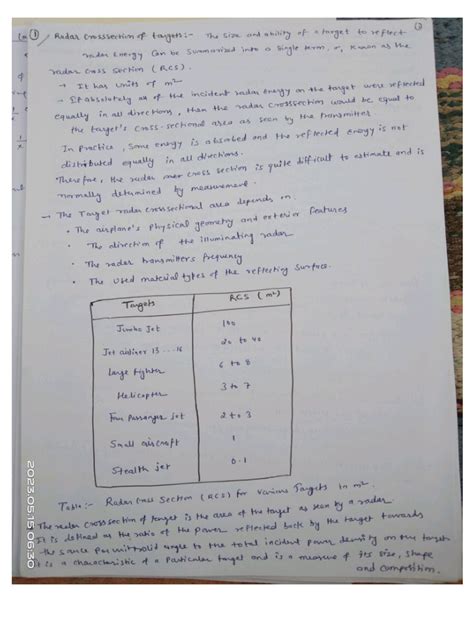 ① Radar Crosssection of targets:- The size and ability of a target to reflect
radar Energy Can be Summarized into a Single term, σ, Known as the
radar Cross Section (RCS).
→ It has units of m²
→ If absolutely all of the incident radar Energy on the target were reflected
equally in all directions, then the radar Crosssection would be equal to
the target's Cross-Sectional area as seen by the transmitter.
In Practice, Some energy is absorbed and the reflected Energy is not
distributed equally in all directions.
Therefore, the radar cross section is quite difficult to estimate and is
normally determined by measurement.
→ The Target radar crosssectional area depends on:
• The airplane's Physical geometry and exterior features
• The direction of the illuminating radar
• The radar transmitters frequency
• The used material types of the reflecting Surface.
Targets RCS (m²)
Jumbo Jet 100
Jet airliner 13 ... 16 20 to 40
Large fighter 6 to 8
Helicopter 3 to 7
Four Passanger jet 2 to 3
Small aircraft 1
Stealth jet 0.1
Table:- Radar Cross Section (RCS) for Various Targets in m².
The radar crosssection of target is the area of the target as seen by a radar.
It is defined as the ratio of the Power reflected back by the target towards
the solid angle to the total incident power density on the target
is a characteristic of a Particular target and is a measure of its size, shape
and composition.
2023.05.15 06:30